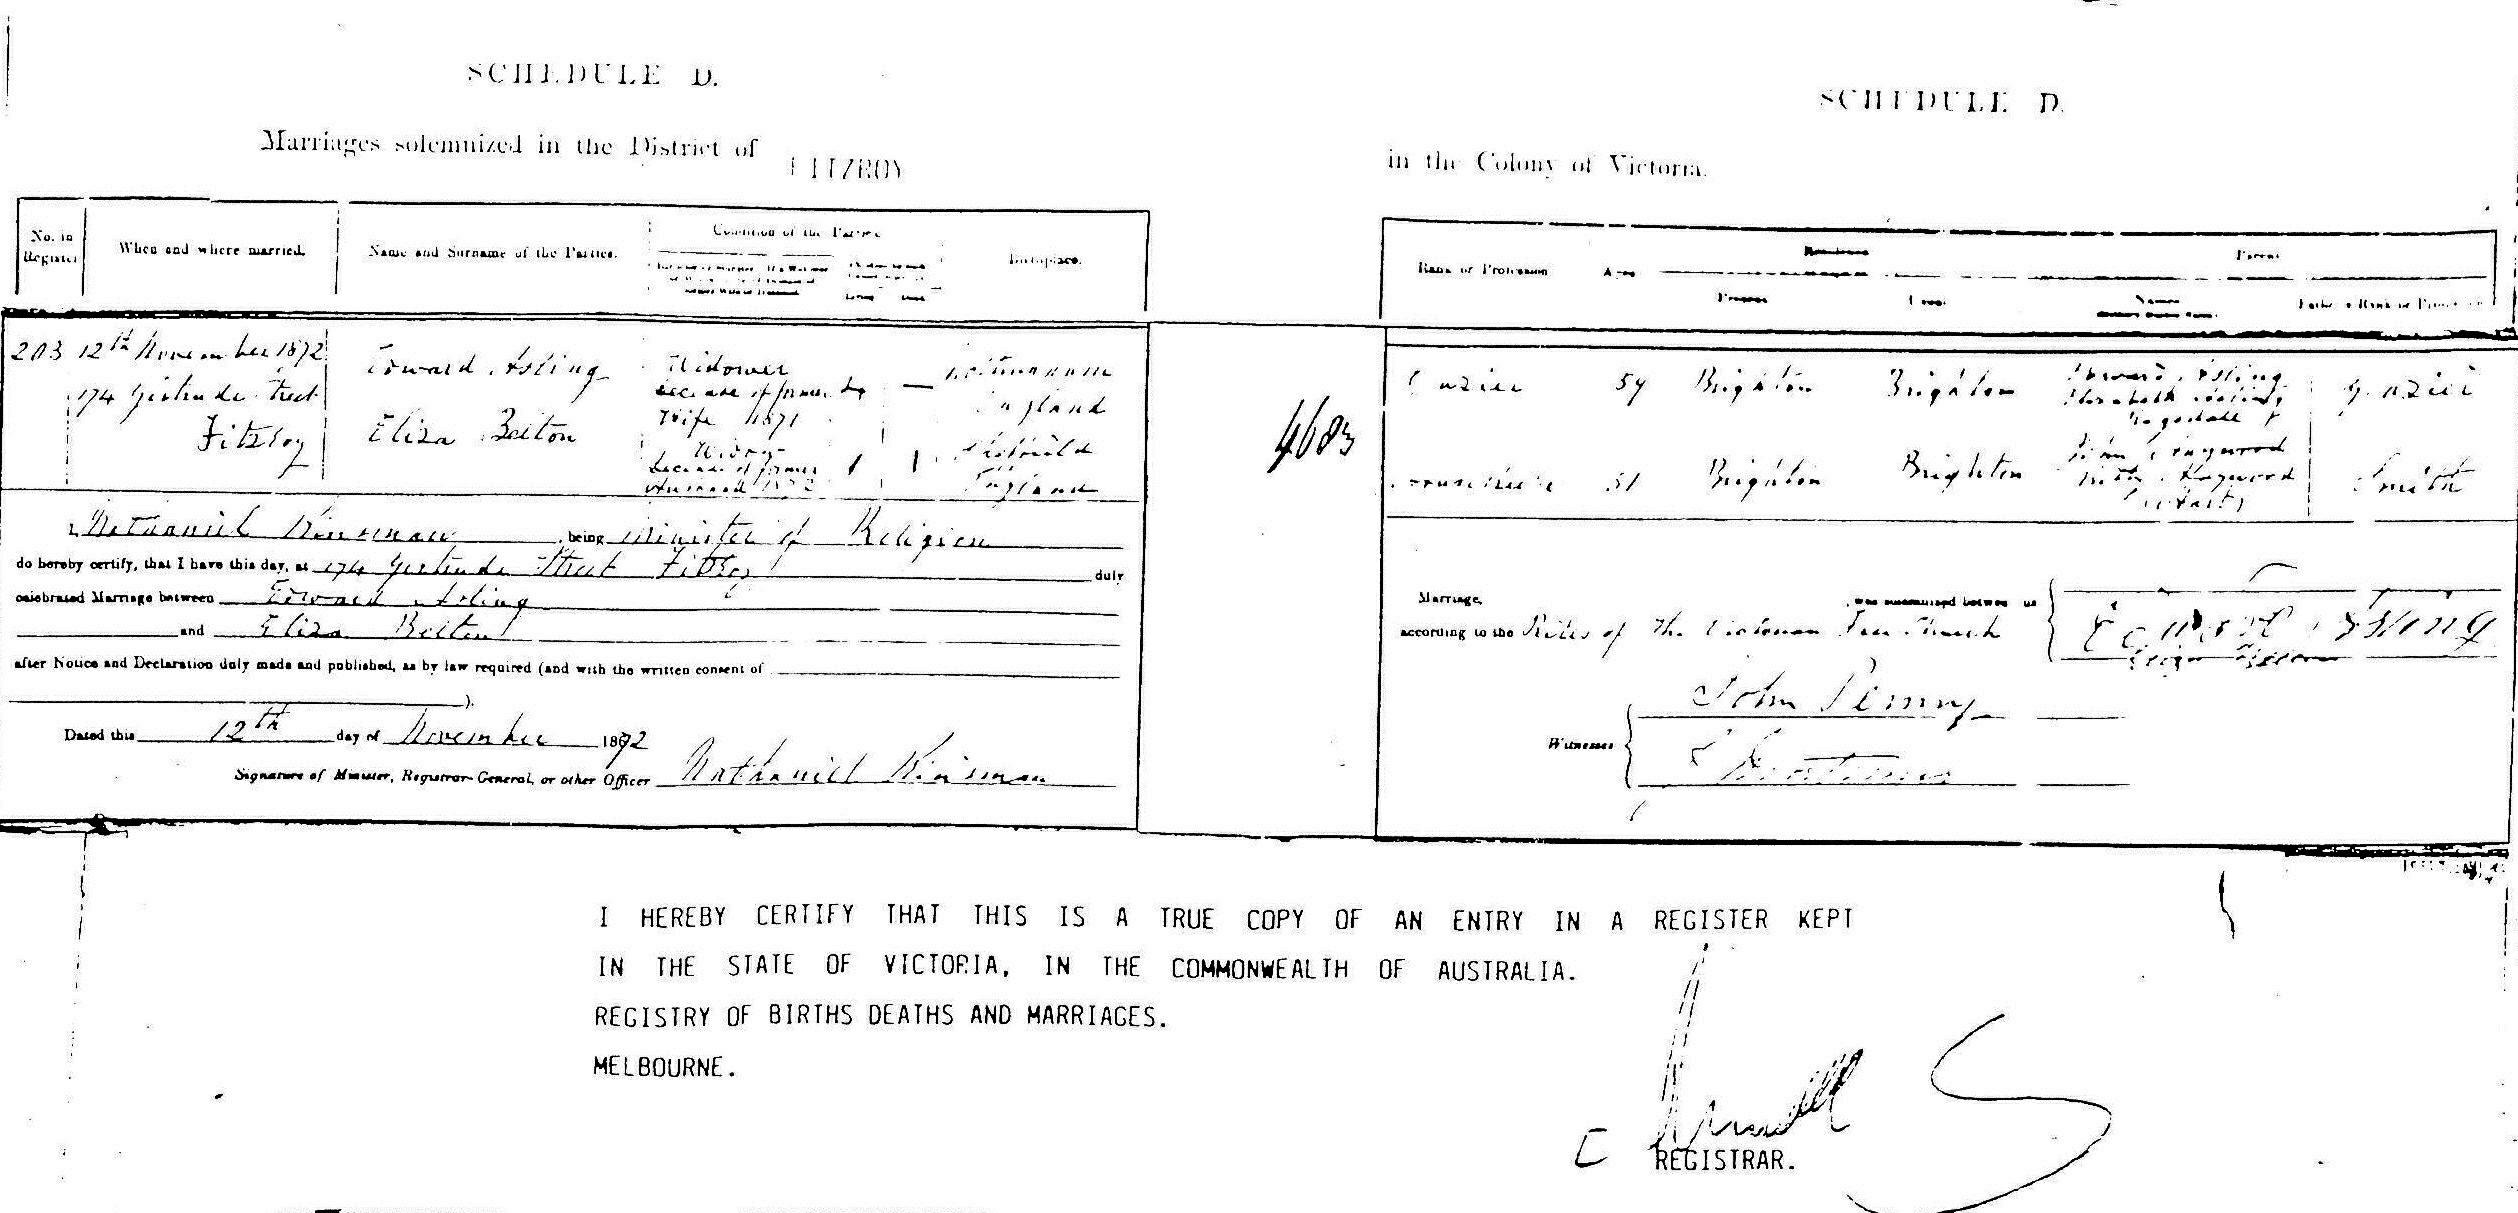 SCHEDULE D.
Marriages solemnized in the District of FITZROY
No. in Register
When and where married.
Name and Surname of the Parties.
Condition of the Parties
Birthplace.
203 12th November 1872
174 Gertrude Street
Fitzroy
Edward Asling
Eliza Belton
Widower
decease of former
Wife 1871
Widow
decease of former
England
England
Nathaniel Kinsman being Minister of Religion
do hereby certify, that I have this day, at 174 Gertrude Street Fitzroy duly
celebrated Marriage between Edward Asling
and Eliza Belton
after Notice and Declaration duly made and published, as by law required (and with the written consent of
).
Dated this 12th day of November 1872
Signature of Minister, Registrar-General, or other Officer Nathaniel Kinsman
4683
SCHEDULE D.
in the Colony of Victoria.
Rank or Profession
Age
Residence
Present
Usual
Parents
Names
Father's Rank or Profession
Grazier 59 Brighton Brighton Edward Asling
Elizabeth Asling
Grazier
51 Brighton Brighton
Haywood
Smith
Marriage, was solemnized between us
according to the Rites of The Victorian Free Church
Edward Asling
Witnesses
John Penny
I HEREBY CERTIFY THAT THIS IS A TRUE COPY OF AN ENTRY IN A REGISTER KEPT
IN THE STATE OF VICTORIA, IN THE COMMONWEALTH OF AUSTRALIA.
REGISTRY OF BIRTHS DEATHS AND MARRIAGES.
MELBOURNE.
REGISTRAR.